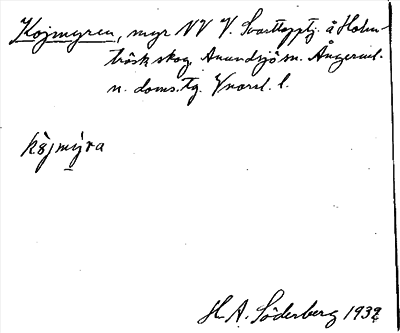 Kojmyren, myr NV V. Svarttjppt. å Holm-
träsk skog Anundsjö sn. Ångerml.
n. doms.tg. Vnorrl. l.
kȯjmýra
H. A. Söderberg 1932